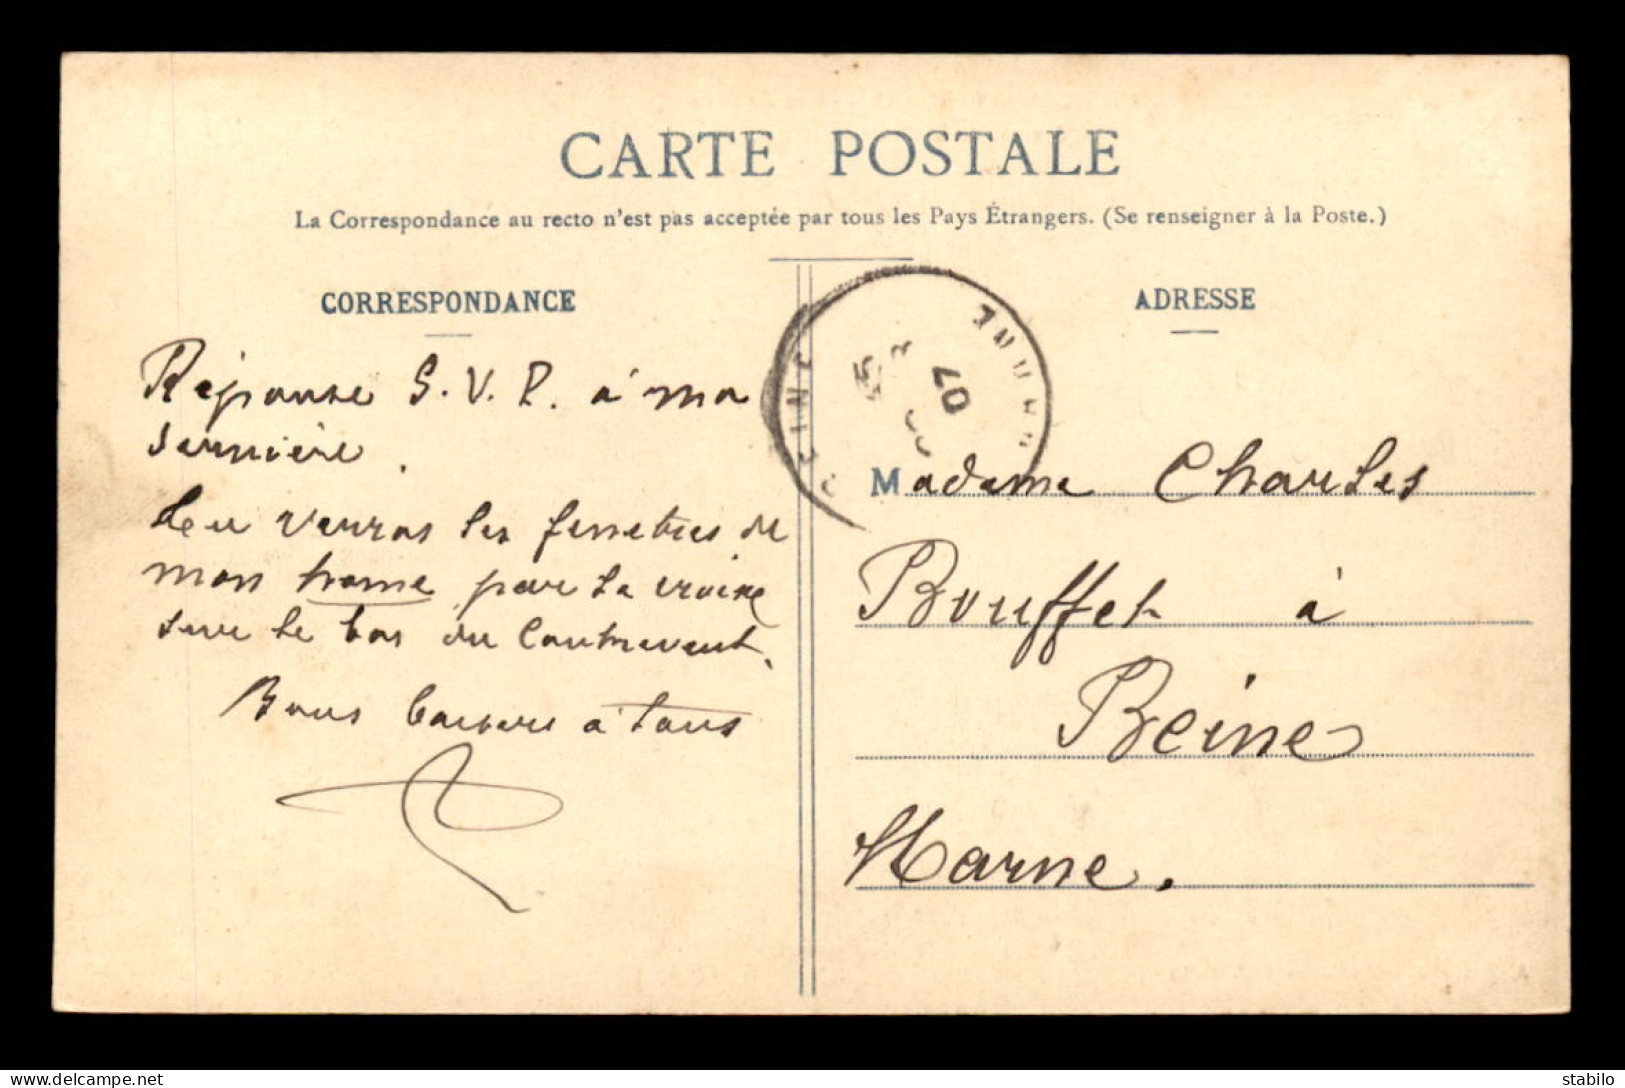 CARTE POSTALE
La Correspondance au recto n'est pas acceptée par tous les Pays Étrangers. (Se renseigner à la Poste.)
CORRESPONDANCE
ADRESSE
Réponse S.V.P. à ma
dernière.
verras les fenetres de
mon home par la croix
sur le bas du Contrevent.
Bons baisers à tous
Madame Charles
Bouffet à
Beine
Marne.
07
www.delcampe.net
stabilo